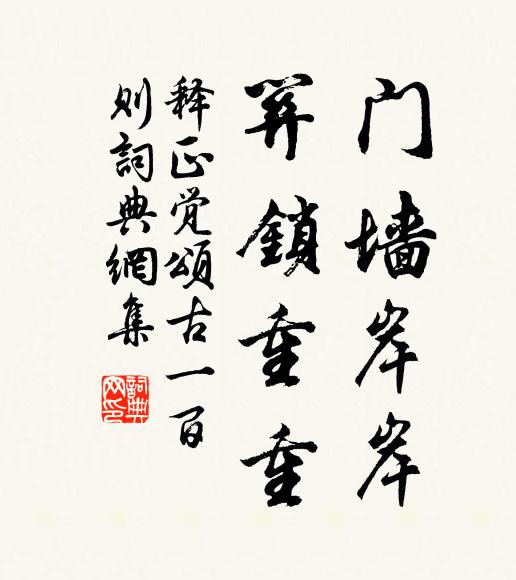 门墙岸岸
關鎖重重
释正觉颂古一百
则詞典網集
詞典
网印